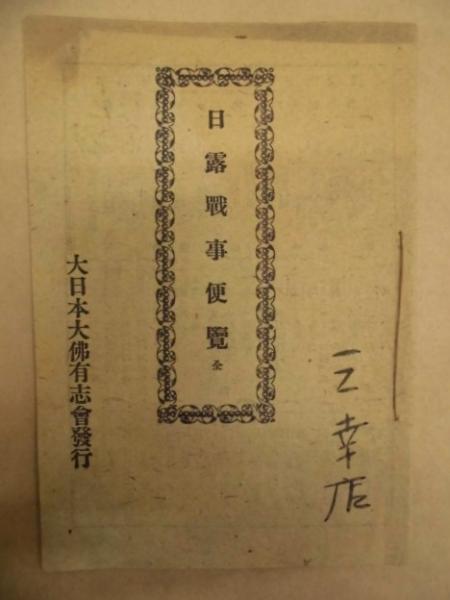 日露戰事便覽 全
大日本大佛有志會發行
幸店